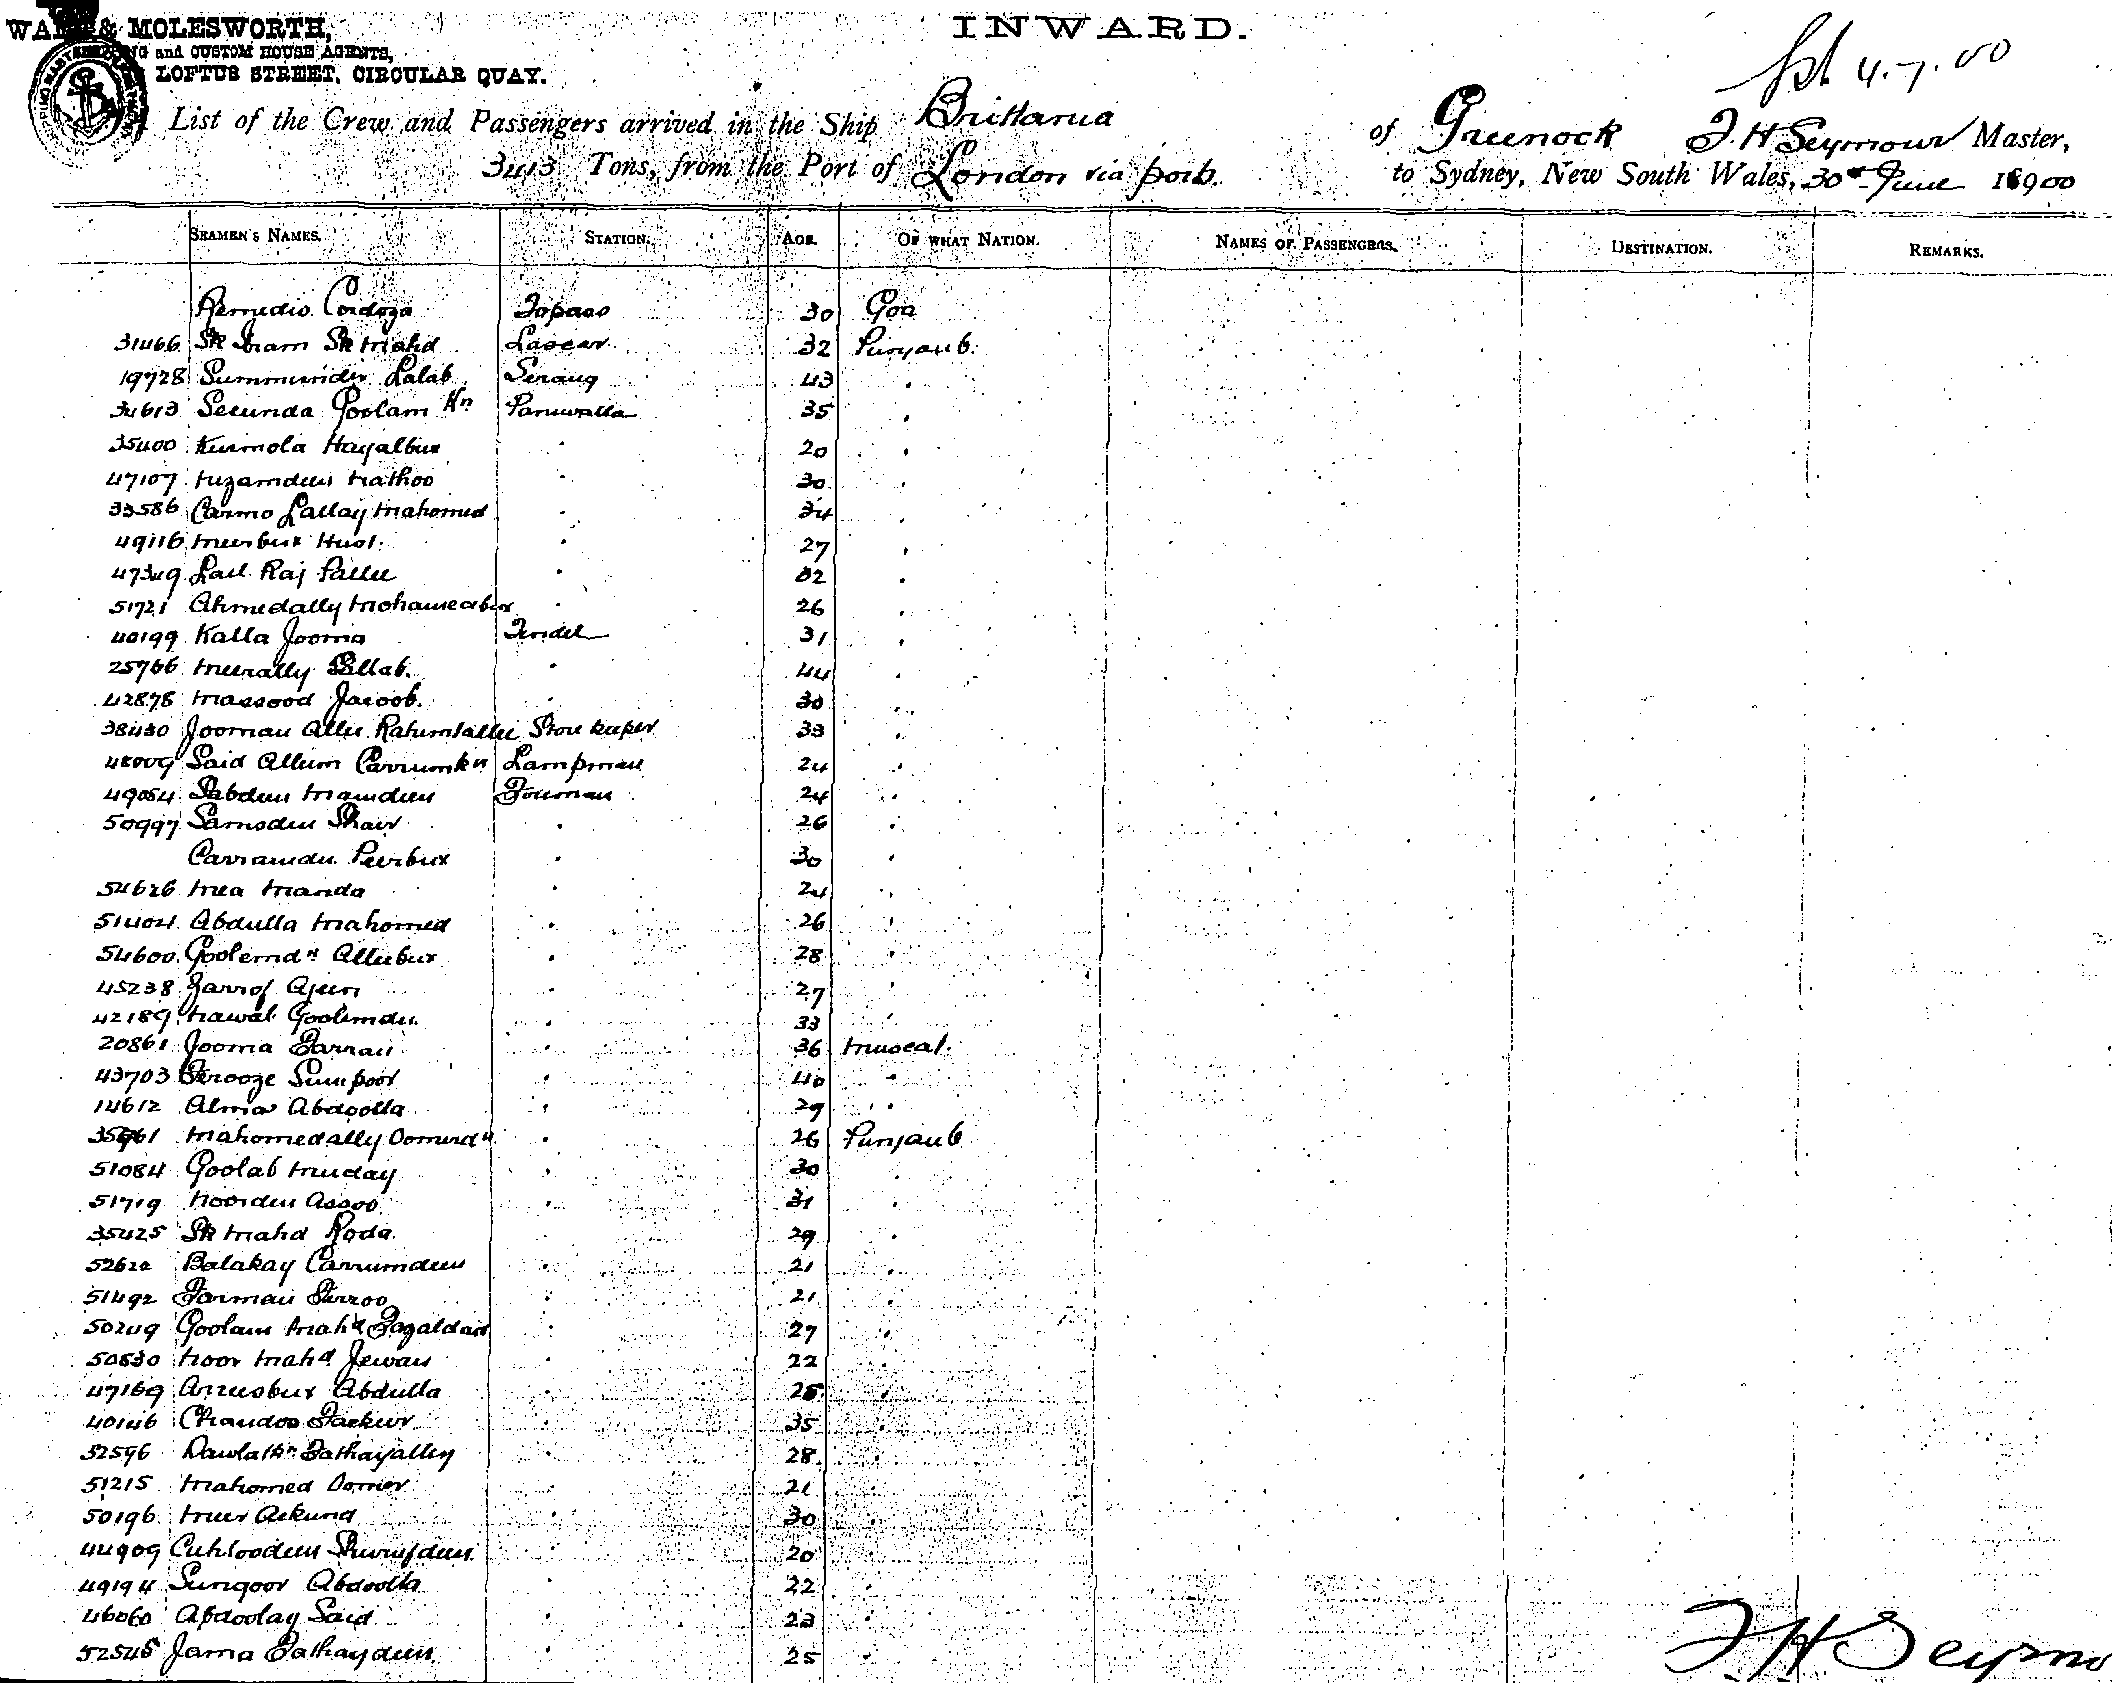 & MOLESWORTH,
and CUSTOM HOUSE AGENTS,
LOFTUS STREET, CIRCULAR QUAY.
INWARD.
4.7.00
List of the Crew and Passengers arrived in the Ship Brittania of Greenock F. H Seymour Master,
3413 Tons, from the Port of London via ports. to Sydney, New South Wales, 30th June 18900
SEAMEN'S NAMES. STATION. AGE. OF WHAT NATION. NAMES OF PASSENGERS. DESTINATION. REMARKS.
Remedio Cordoza Topass 30 Goa
31466 Sk Imam Sk Mahd Lascar 32 Punjaub.
19728 Summunder Lalab Serang 43 "
34613 Secunda Goolam Kn Paniwalla 35 "
35400 Kurmola Hayalbux " 20 "
47107 Nuzamdeen Nathoo " 30 "
33586 Carmo Lallay Mahomed " 34 "
49116 Meerbux " 27 "
47349 Lall Raj Pallee " 32 "
51721 Ahmedally " 26 "
40199 Kalla Jooma Tindel 31 "
25766 Meerally " 44 "
42878 Massood Jacoob. " 30 "
38430 Jooman Allee Store keeper 33 "
Said Allum Carrumkn Lampman 24 "
49054 Mamdeen Fireman 24 "
50997 Samsden Shair " 26 "
Carramdn Peerbux " 30 "
54626 Mea Manda " 24 "
51404 Abdulla Mahomed " 26 "
54600 Goolemdn Alleebux " 28 "
45238 Zarrof Ajun " 27 "
42189 Nawab Goolemdn. " 33 "
20861 Jooma Farran " 36 Muscat.
43703 Ferooze Sumpoor " 40 "
14612 Alma Abdoolla " 29 "
35961 Mahomedally Oomerdn " 26 Punjaub
51084 Goolab Meeday " 30 "
51719 Noordeen Assoo " 31 "
35425 Sk Mahd Roda. " 29 "
Balakay Carrumdeen " 21 "
51492 Farman " 21 "
50249 Goolam Mahd Fazaldad " 27 "
50830 Noor Mahd Jewan " 22 "
47169 Abdulla " 25 "
40146 Chandoo Fackur " 35
52596 Dawlatkn Fathayalley " 28
51215 Mahomed Oomer " 21
50196 Meer Ackund " 30
44909 " 20
49194 Sungoor Abdoolla " 22 "
46060 Abdoolay Said " 23 "
52545 Jama Fathaydeen. " 25 "
F H Seymo